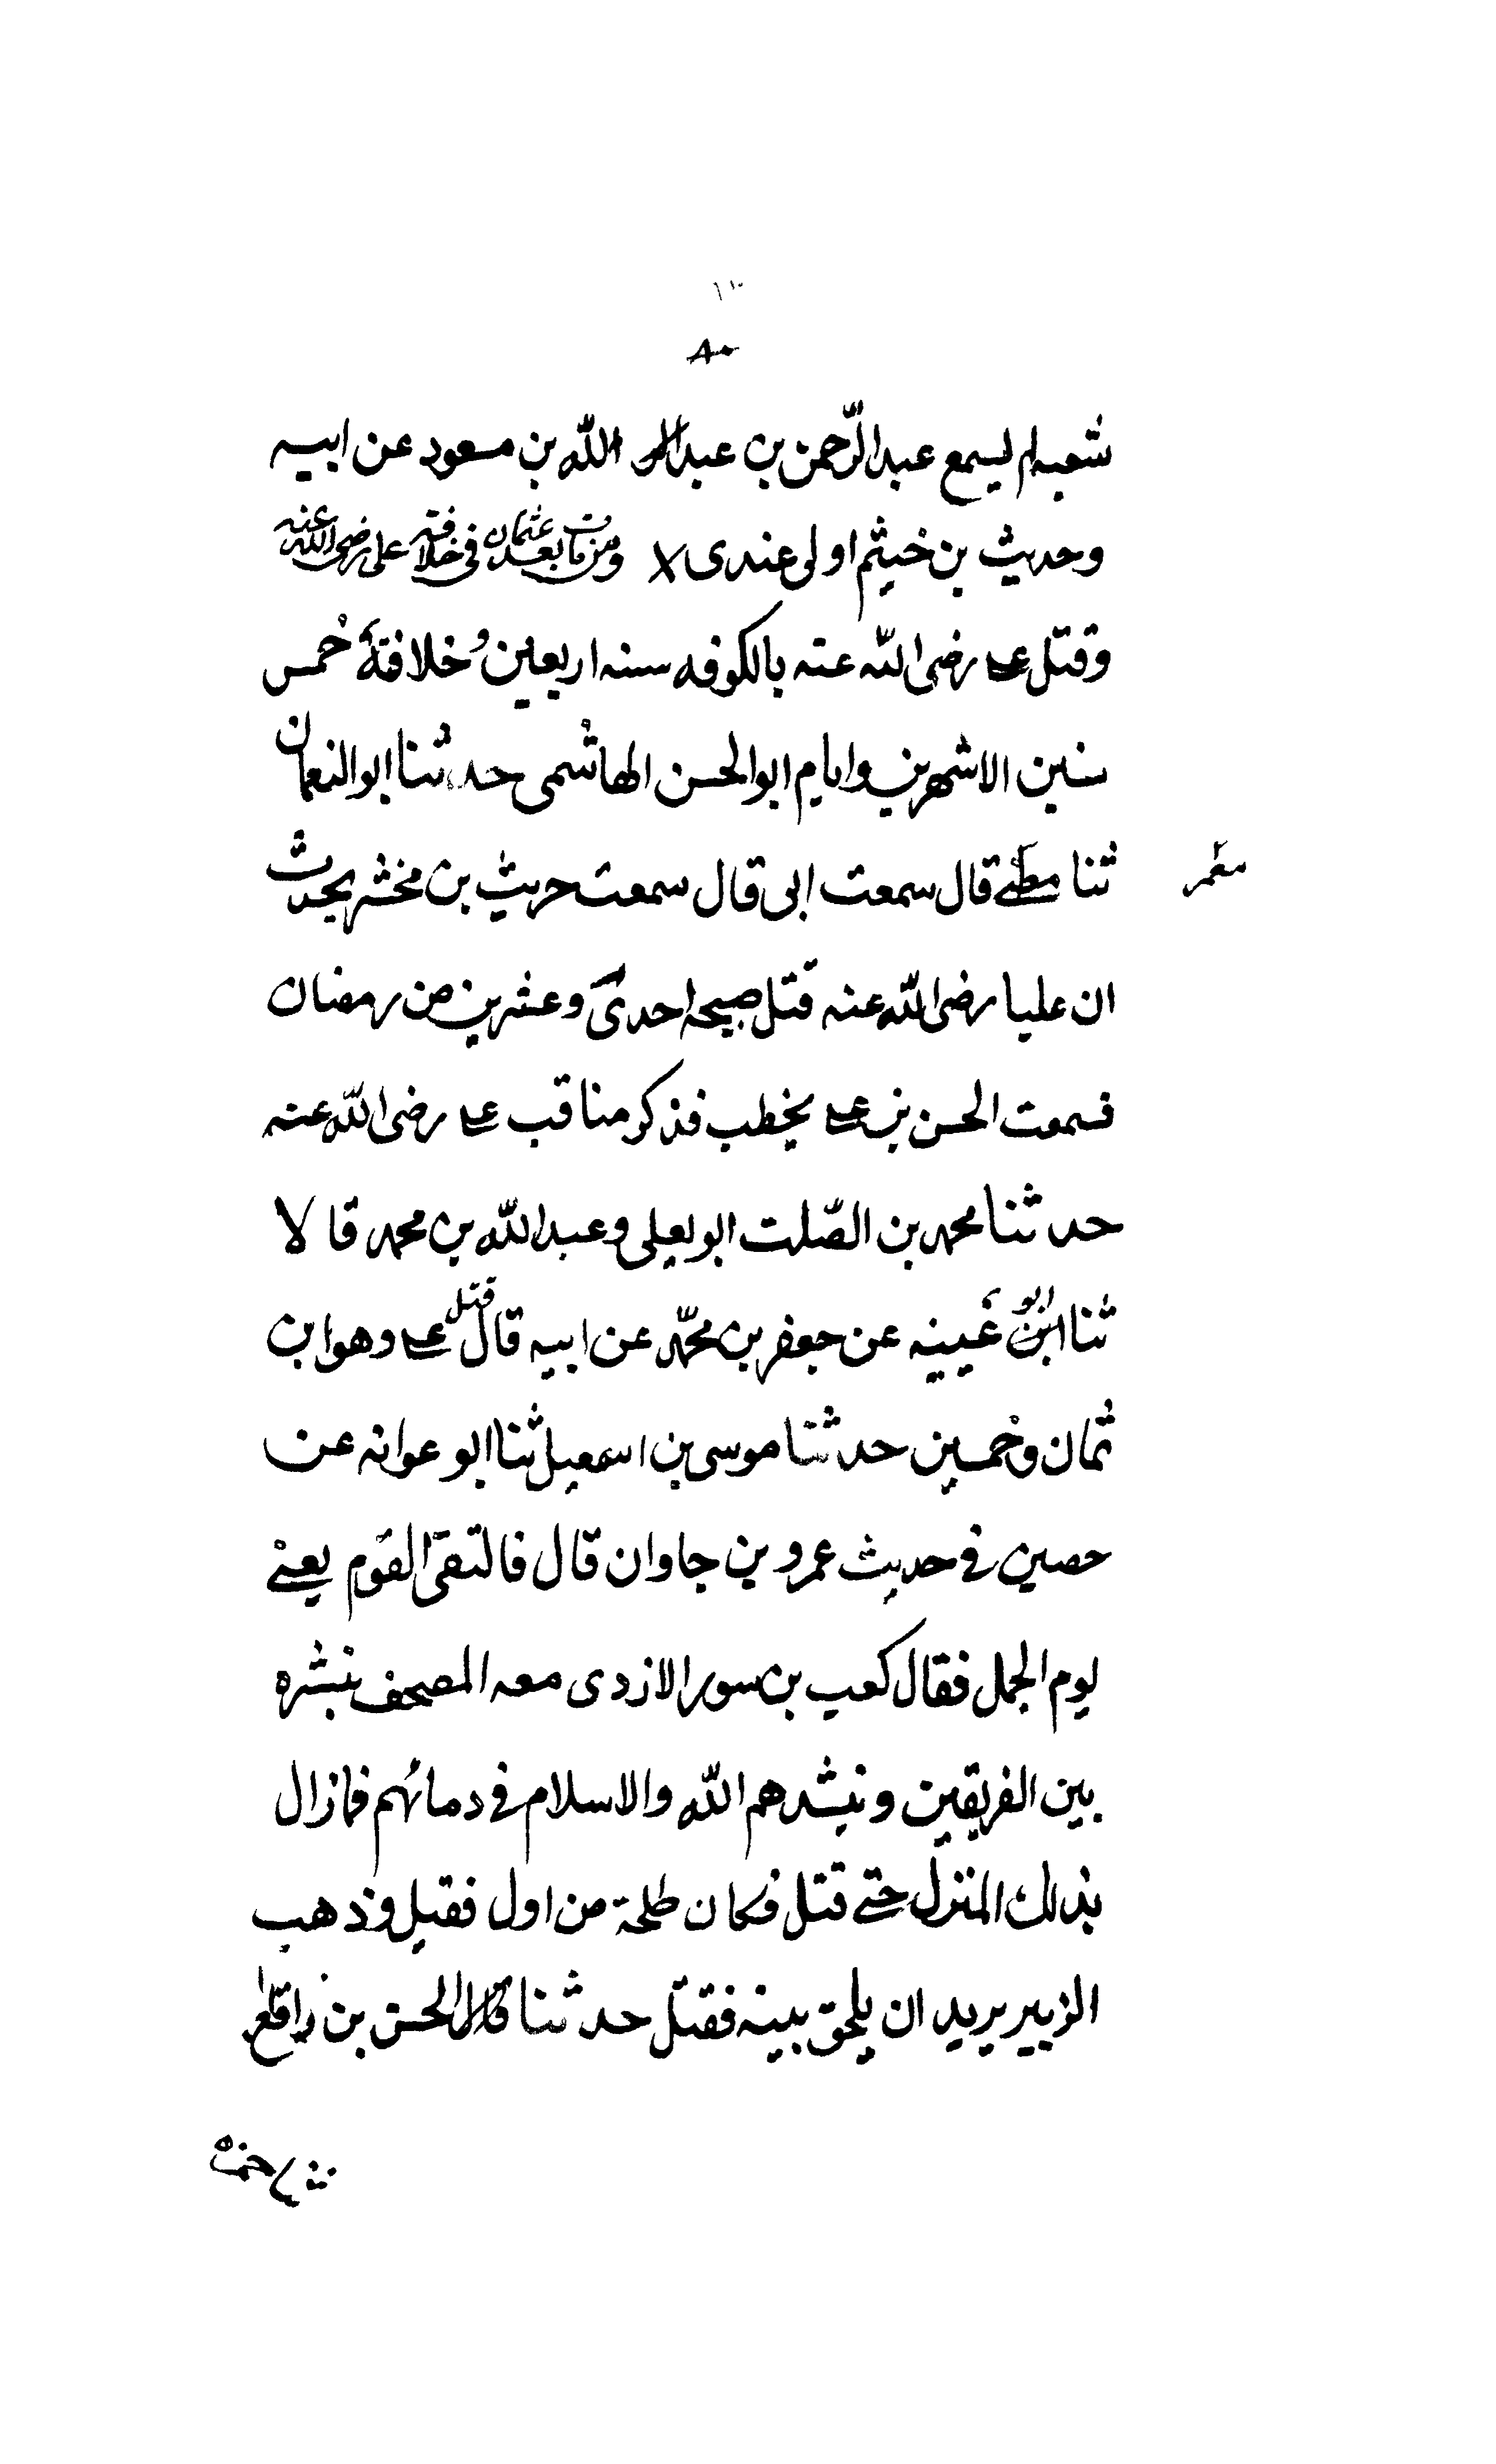 ٨٠
شعبه لم يسمع عبد الرّحمن بن عبد الله بن مسعود عن ابيه
وحديث بن خيثم اولى عندى ومن مات بعد عثمان فى خلافته على رضى الله عنه
وقتل على رضى الله عنه بالكوفه سنه اربعين وخلافتهٔ خمس
سنين الا شهرين وايام ابو الحسن الهاشمى حدثنا ابو النعمان
معمر
ثنا قال سمعت ابى قال سمعت حريث بن مخش يحدث
ان عليا رضى الله عنه قتل صبيحه احدى وعشرين من رمضان
فسمعت الحسن بن على يخطب فذكر مناقب على رضى الله عنه
حدثنا محمد بن الصّلت ابو يعلى وعبد الله بن محمد قالا
ثنا ابن عيينه عن جعفر بن محمّد عن ابيه قال قتل على وهو ابن
ثمان وخمسين حدثنا موسى بن اسمعيل ثنا ابو عوانه عن
حصين فى حديث عمرو بن جاوان قال فالتقى القوم يعنى
يوم الجمل فقال كعب بن سور الازدى معه المصحف ينشره
بين الفريقين وينشدهم الله والاسلام فى دمائهم فما زال
بذلك المنزل حتى قتل فكان طلحة من اول قتيل وذهب
الزبير يريد ان يلحق ببيته فقتل حدثنا الحسن بن راقع
ثنا ضمره